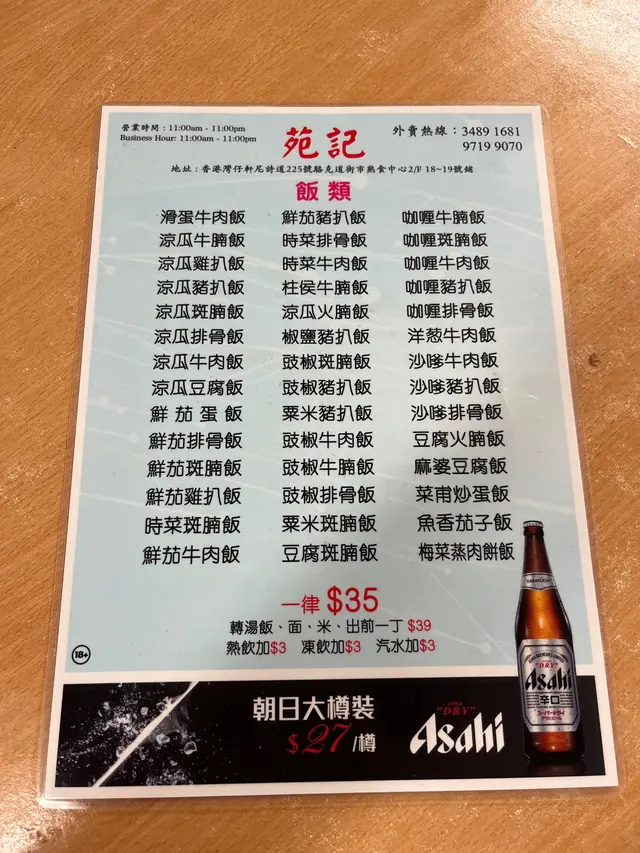 營業時間：11:00am - 11:00pm
Business Hour: 11:00am - 11:00pm
苑記
外賣熱線：3489 1681
9719 9070
地址：香港灣仔軒尼詩道225號駱克道街市熟食中心2/F 18~19號舖
飯類
滑蛋牛肉飯 鮮茄豬扒飯 咖喱牛腩飯
涼瓜牛腩飯 時菜排骨飯 咖喱斑腩飯
涼瓜雞扒飯 時菜牛肉飯 咖喱牛肉飯
涼瓜豬扒飯 柱侯牛腩飯 咖喱豬扒飯
涼瓜斑腩飯 涼瓜火腩飯 咖喱排骨飯
涼瓜排骨飯 椒鹽豬扒飯 洋葱牛肉飯
涼瓜牛肉飯 豉椒斑腩飯 沙嗲牛肉飯
涼瓜豆腐飯 豉椒豬扒飯 沙嗲豬扒飯
鮮茄蛋飯 粟米豬扒飯 沙嗲排骨飯
鮮茄排骨飯 豉椒牛肉飯 豆腐火腩飯
鮮茄斑腩飯 豉椒牛腩飯 麻婆豆腐飯
鮮茄雞扒飯 豉椒排骨飯 菜甫炒蛋飯
時菜斑腩飯 粟米斑腩飯 魚香茄子飯
鮮茄牛肉飯 豆腐斑腩飯 梅菜蒸肉餅飯
一律 $35
轉湯飯、面、米、出前一丁 $39
熱飲加$3 凍飲加$3 汽水加$3
18+
朝日大樽裝
$27/樽
SUPER
"DRY"
Asahi
"DRY"
Asahi
辛口
スーパードライ
アサヒビール